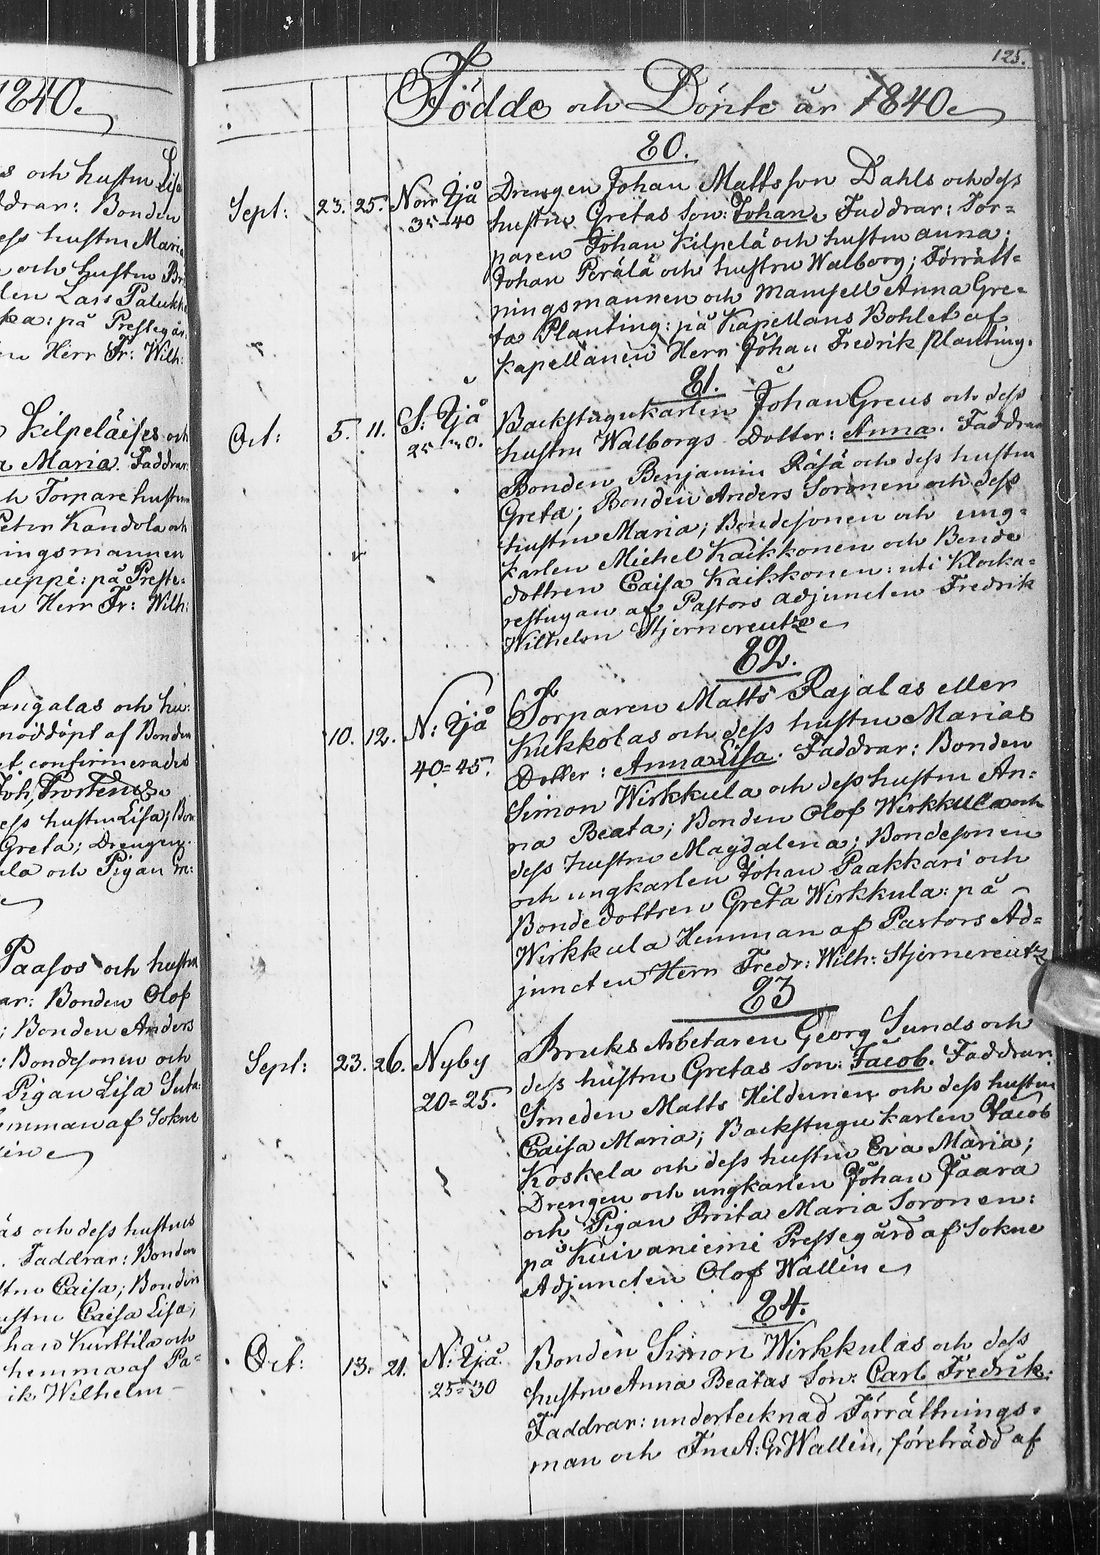 1840
s och hustru Lisa
ddrar: Bonden
ess hustru Maria
och hustru Br
len Lars Palukka
ka: på Prestegår
n Herr Fr: Wilh:
Kilpeläises och
a Maria. Faddrar:
ch Torpare hustru
Peter Kandola och
ingsmannen
ueppi: på Preste-
n Herr Fr: Wilh:
angalas och hu:
nöddöpt af Bonden
et confirmerades
Joh,
ess hustru Lisa; Bon
Greta; Drengen
ula och Pigan
Paasos och hustru
ar: Bonden Olof
; Bonden Anders
: Bondesonen och
Pigan Lisa
emman af Sokne
line
ås och dess hustrus
. Faddrar: Bonden
tru Caisa; Bonden
ustru Caisa Lisa;
han Kurttila och
hemma af Pa-
ik Wilhelm
125.
Födde och Döpte år 1840
80.
Sept: 23. 25. Norr Ijå Drengen Johan Mattsson Dahls och dess
35-40 hustru Gretas Son: Johan. Faddrar: Tor-
paren Johan Kilpelä och hustru Anna;
Johan Perälä och hustru Walborg; Förrätt-
ningsmannen och Mamsell Anna Gre-
ta Planting: på Kapellans Bohlet af
Kapellanen Herr Johan Fredrik Planting.
81.
Oct: 5. 11. S: Ijå Backstugukarlen Johan Greus och dess
25-30. hustru Walborgs Dotter: Anna. Faddrar
Bonden Benjamin Räsä och dess hustru
Greta; Bonden Anders Soronen och dess
hustru Maria; Bondesonen och ung-
karlen Michel Kaikkonen och Bonde
dottren Caisa Kaikkonen: uti Klocka-
restugan af Pastors Adjuncten Fredrik
Wilhelm Stjerncreutz
82.
10. 12. N: Ijå Torparen Matts Rajalas eller
40=45. Kukkolas och dess hustru Marias
Dotter: Anna Lisa. Faddrar: Bonden
Simon Wirkkula och dess hustru An-
na Beata; Bonden Olof Wirkkula och
dess hustru Magdalena; Bondesonen
och ungkarlen Johan Paakkari och
Bondedottren Greta Wirkkula: på
Wirkkula Hemman af Pastors Ad-
juncten Herr Fredr: Wilh: Stjerncreutz
83
Sept: 23. 26. Nyby Bruks Arbetaren Georg Sunds och
20=25. dess hustru Gretas Son: Jacob. Faddrar:
Smeden Matts Hildunen och dess hustru
Caisa Maria; Backstugu karlen Jacob
Koskela och dess hustru Eva Maria;
Drengen och ungkarlen Johan Jaara
och Pigan Brita Maria Soronen:
på Kuivaniemi Prestegård af Sokne
Adjuncten Olof Wallin
84.
Oct: 13. 21. N: Ijå. Bonden Simon Wirkkulas och dess
25=30 hustru Anna Beatas Son: Carl Fredrik:
Faddrar: undertecknad Förrättnings-
man och Fru A: Gr Wallin, företrädd af